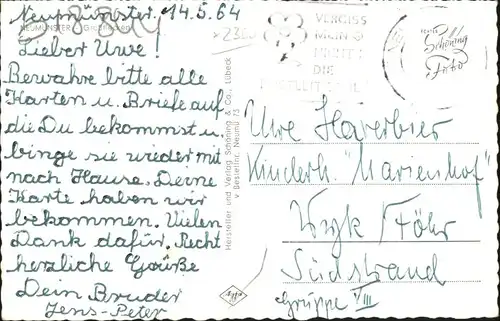 Neumünster. 14.5.64
NEUMÜNSTER
Lieber Uwe!
Bewahre bitte alle
Karten u. Briefe auf
die Du bekommst u.
binge sie wieder mit
nach Hause. Deine
Karte haben wir
bekommen. Vielen
Dank dafür. Recht
herzliche Grüße
Dein Bruder
Jens-Peter
Hersteller und Verlag Schöning & Co., Lübeck
Bestellnr. Neumü 75
VERGISS
MEIN
NICHT
DIE
POSTLEITZAHL
Schöning
Foto
Uwe Häverbier
Kinderh. "Marienhof"
Wyk / Föhr
Südstrand
Gruppe VIII